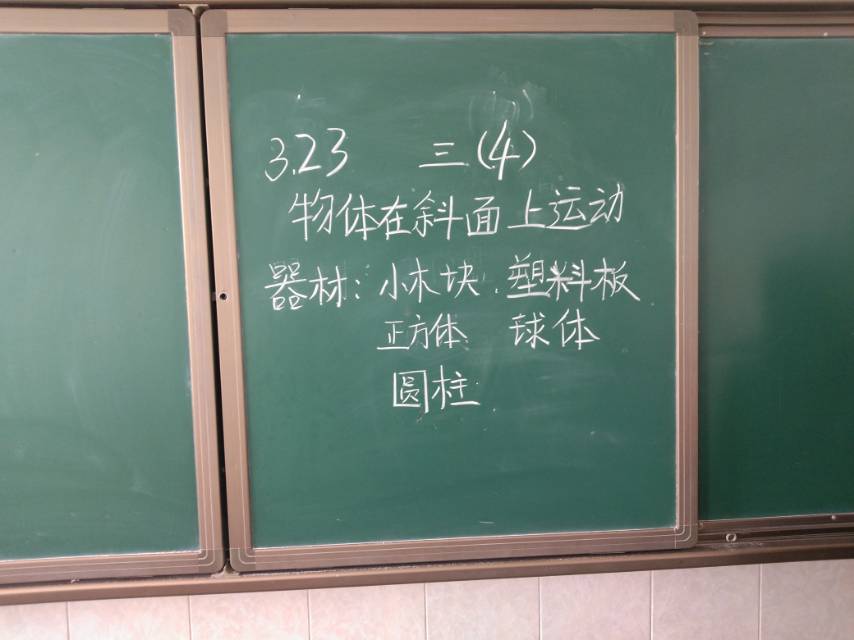 3.23 三(4)
物体在斜面上运动
器材：小木块、塑料板
正方体 球体
圆柱